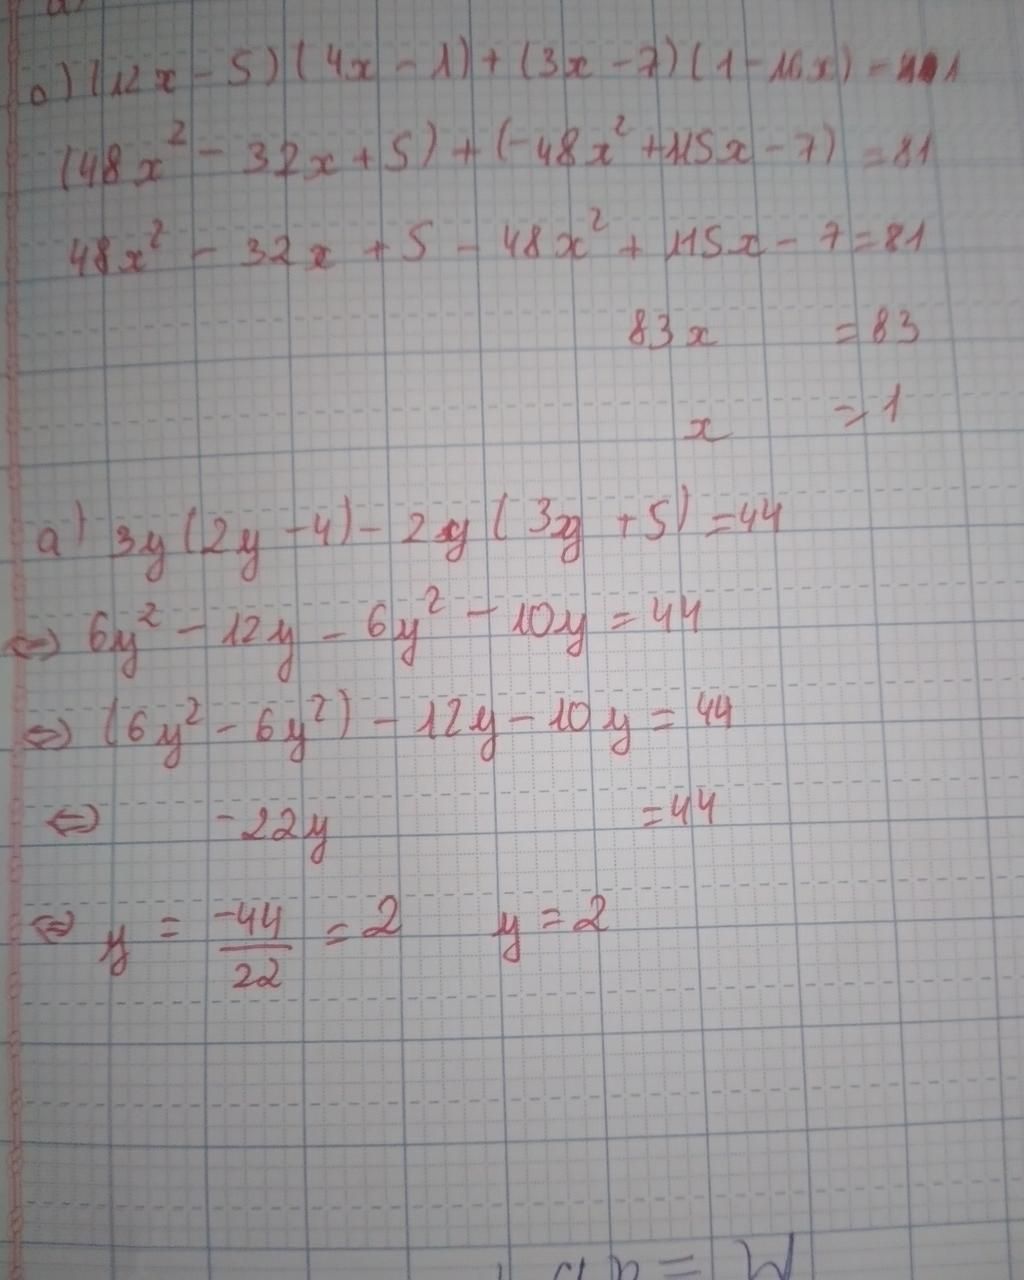 a) (12x - 5)(4x - 1) + (3x - 7)(1 - 16x) = 81
(48x² - 32x + 5) + (-48x² + 115x - 7) = 81
48x² - 32x + 5 - 48x² + 115x - 7 = 81
83x = 83
x = 1
a) 3y(2y - 4) - 2y(3y + 5) = 44
⇔ 6y² - 12y - 6y² - 10y = 44
⇔ (6y² - 6y²) - 12y - 10y = 44
⇔ -22y = 44
⇔ y = -44/22 = 2 y = 2